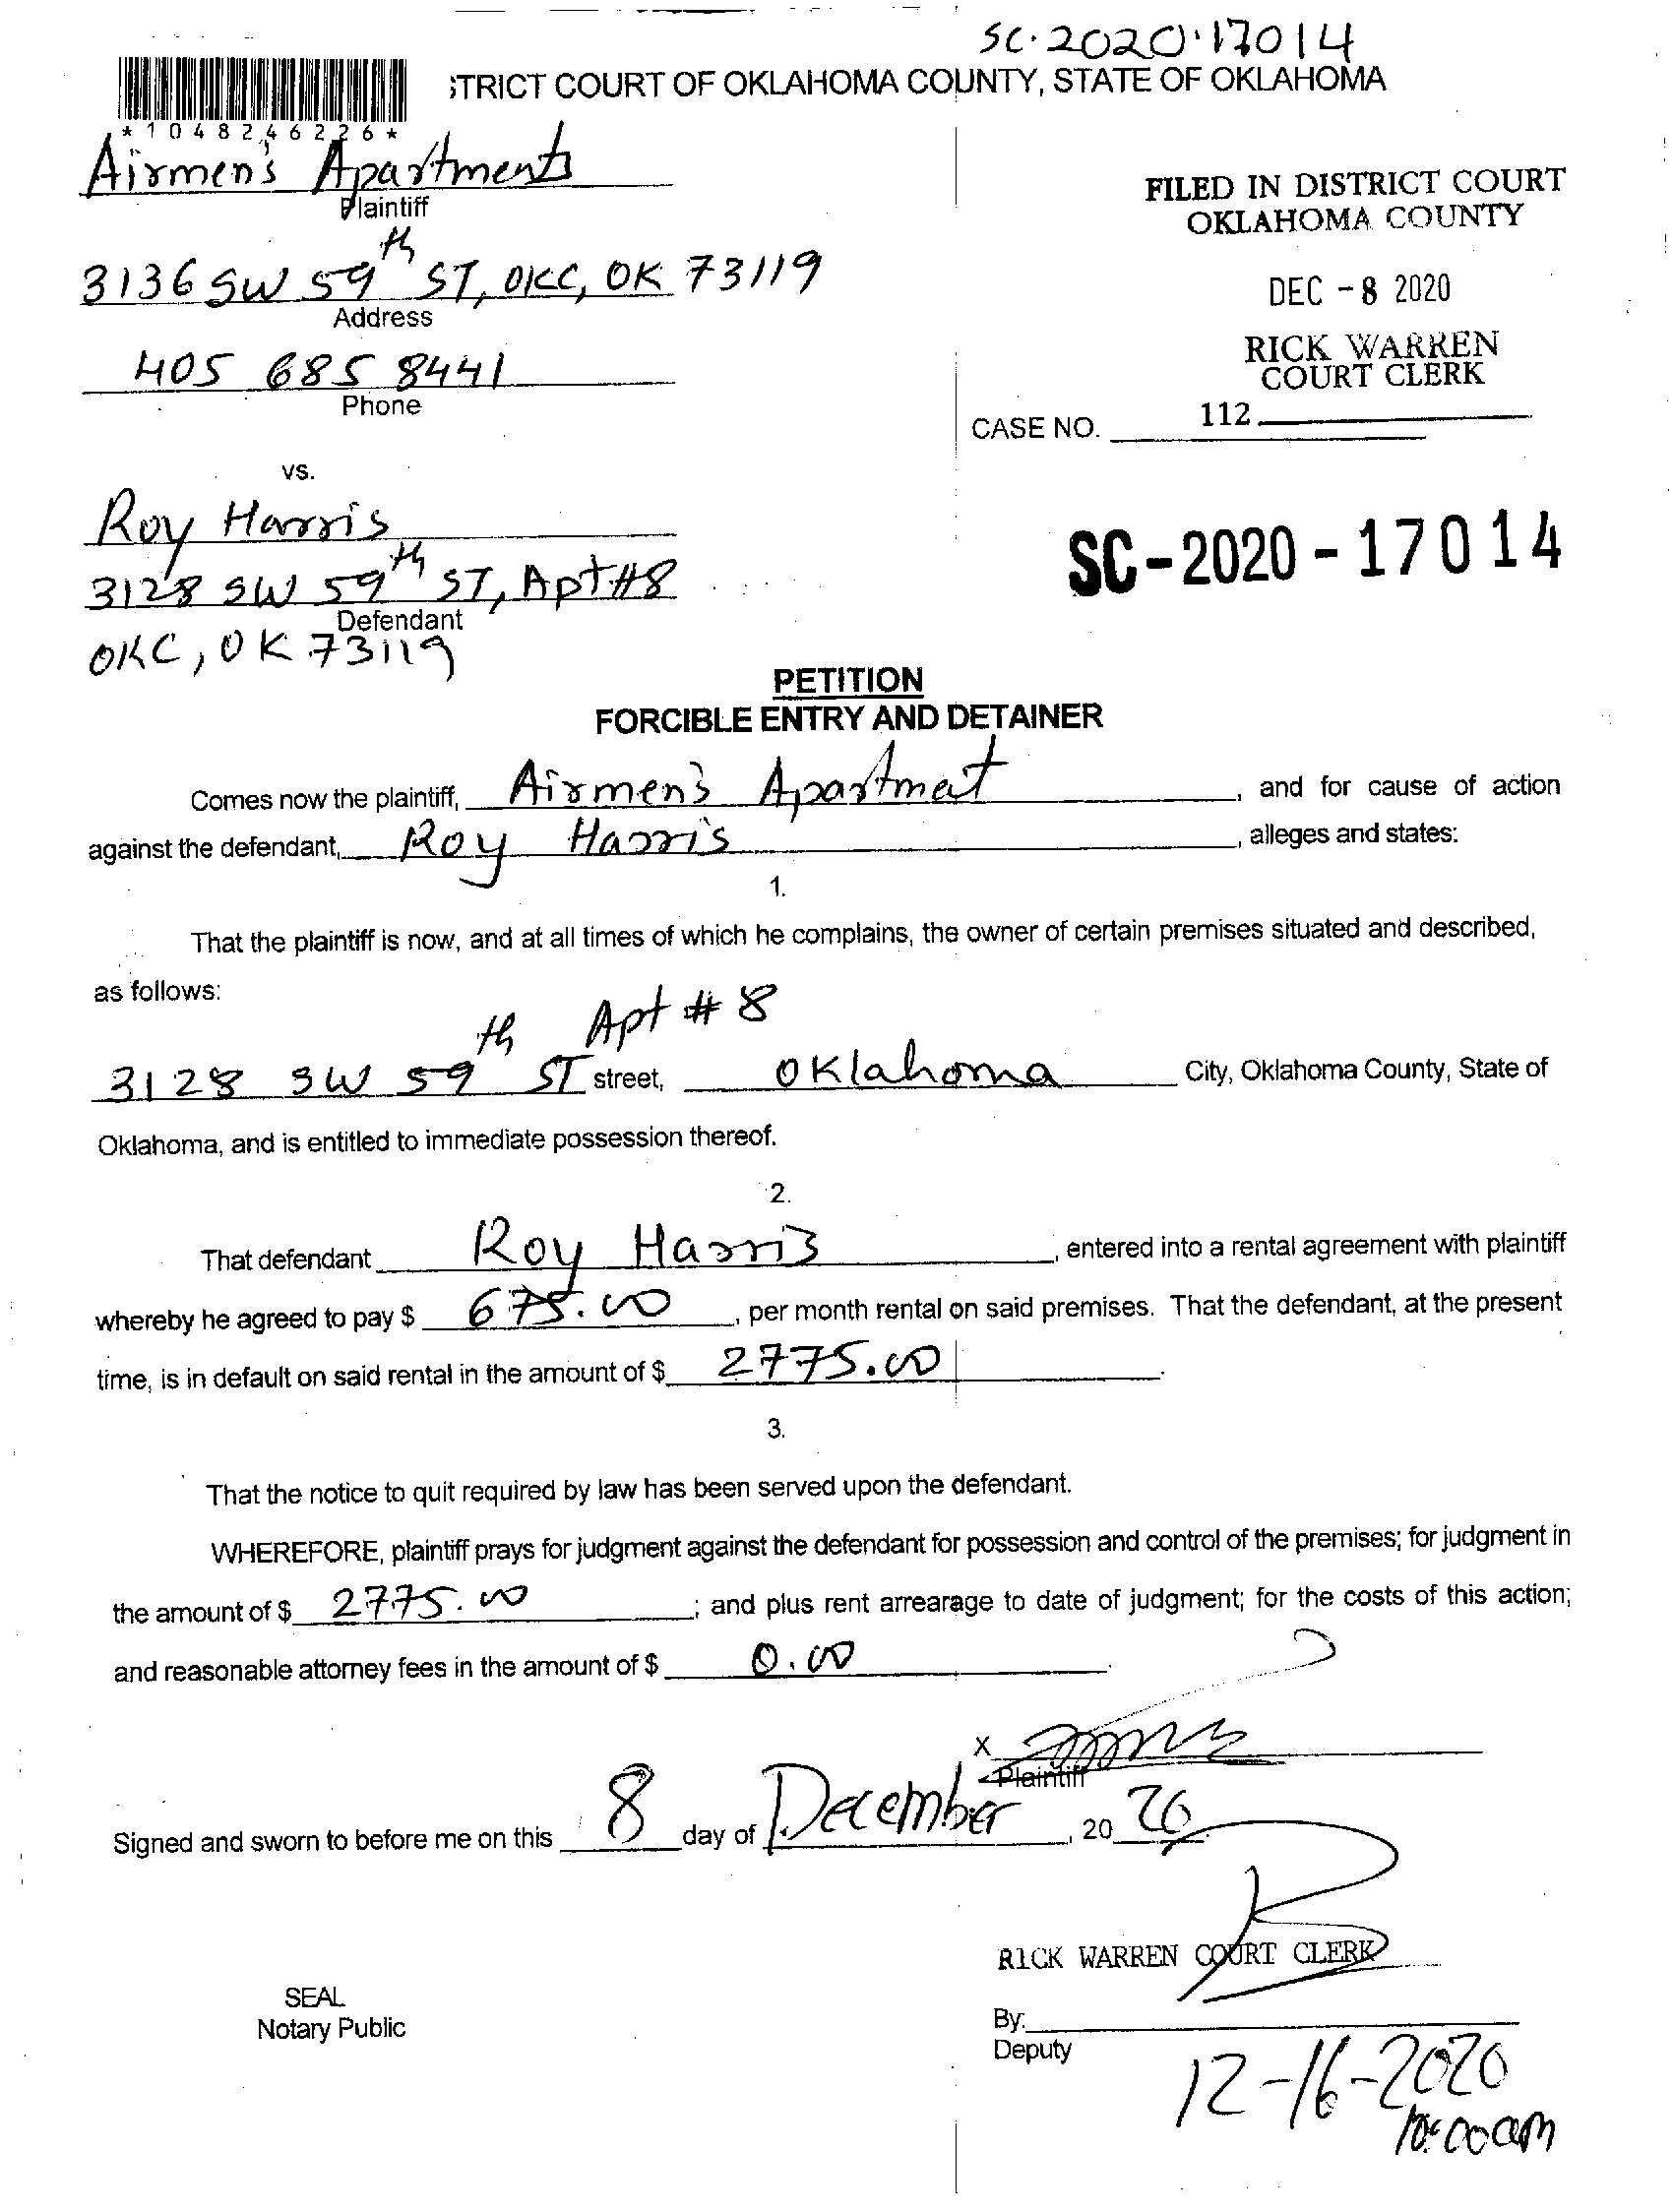 SC-2020-17014
STRICT COURT OF OKLAHOMA COUNTY, STATE OF OKLAHOMA
*1048246226*
Airmen's Apartments
Plaintiff
3136 SW 59th ST, OKC, OK 73119
Address
405 685 8441
Phone
FILED IN DISTRICT COURT
OKLAHOMA COUNTY
DEC -8 2020
RICK WARREN
COURT CLERK
112
CASE NO.
vs.
Roy Harris
3128 SW 59th ST, Apt #8
Defendant
OKC, OK 73119
SC-2020-17014
PETITION
FORCIBLE ENTRY AND DETAINER
Comes now the plaintiff, Airmen's Apartmet, and for cause of action
against the defendant, Roy Harris, alleges and states:
1.
That the plaintiff is now, and at all times of which he complains, the owner of certain premises situated and described,
as follows:
Apt # 8
3128 SW 59th ST street, Oklahoma City, Oklahoma County, State of
Oklahoma, and is entitled to immediate possession thereof.
2.
That defendant Roy Harris, entered into a rental agreement with plaintiff
whereby he agreed to pay $ 675.00, per month rental on said premises. That the defendant, at the present
time, is in default on said rental in the amount of $ 2775.00.
3.
That the notice to quit required by law has been served upon the defendant.
WHEREFORE, plaintiff prays for judgment against the defendant for possession and control of the premises; for judgment in
the amount of $ 2775.00; and plus rent arrearage to date of judgment; for the costs of this action;
and reasonable attorney fees in the amount of $ 0.00.
X
Plaintiff
Signed and sworn to before me on this 8 day of December, 2020.
RICK WARREN COURT CLERK
SEAL
Notary Public
By:
Deputy
12-16-2020
10:00am